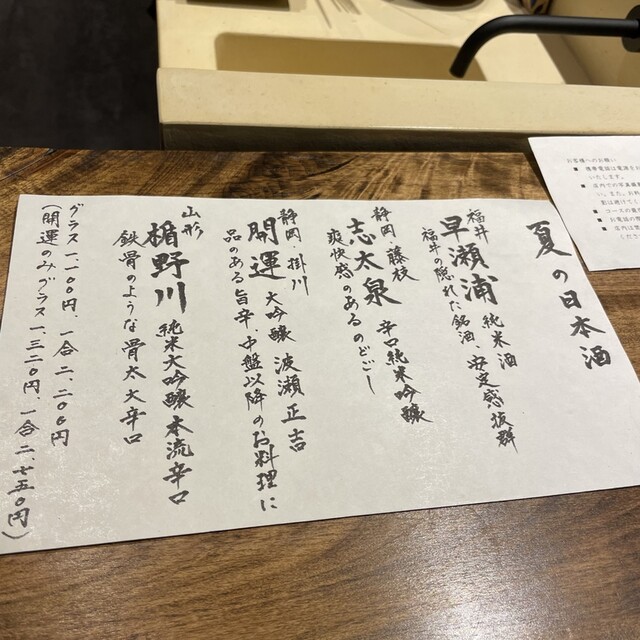 夏の日本酒
福井
早瀬浦 純米酒
福井の隠れた銘酒、安定感抜群
静岡、藤枝
志太泉 辛口純米吟醸
爽快感のあるのどごし
静岡、掛川
開運 大吟醸 波瀬正吉
品のある旨辛、中盤以降のお料理に
山形
楯野川 純米大吟醸 本流辛口
鉄骨のような骨太大辛口
グラス一、一〇〇円、一合二、二〇〇円
(開運のみグラス一、三二〇円、一合二、七五〇円)
お客様へのお願い
■ 携帯電話は電源をお
いたします。
■ 店内での写真撮